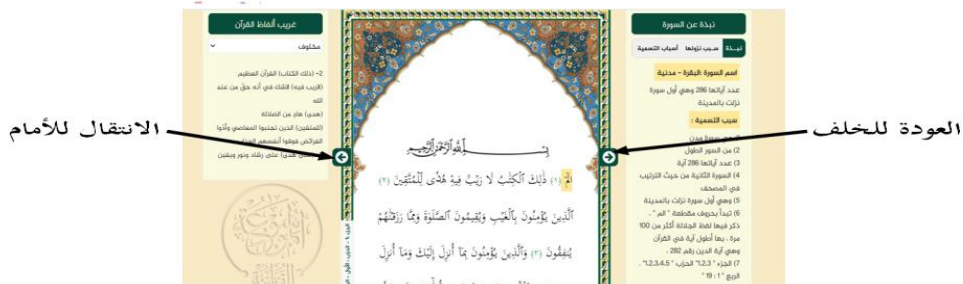 العودة للخلف
نبذة عن السورة
نبـذة سـبب نزولها أسباب التسمية
اسم السورة :البقرة - مدنية
عدد آياتها 286 وهي أول سورة
نزلت بالمدينة
سبب التسمية :
2) من السور الطول
3) عدد آياتها 286 آية
4) السورة الثانية من حيث الترتيب
في المصحف
5) وهي أول سورة نزلت بالمدينة
6) تبدأ بحروف مقطعة " الم " .
ذكر فيها لفظ الجلالة أكثر من 100
مرة . بها أطول آية في القرآن
وهي آية الدين رقم 282 .
7) الجزء " 1,2,3" الحزب " 1,2,3,4,5" .
الربع " 1 : 19 "
بِسْمِ ٱللَّهِ ٱلرَّحْمَٰنِ ٱلرَّحِيمِ
الٓمٓ (١) ذَٰلِكَ ٱلْكِتَٰبُ لَا رَيْبَ فِيهِ هُدًى لِّلْمُتَّقِينَ (٢)
ٱلَّذِينَ يُؤْمِنُونَ بِٱلْغَيْبِ وَيُقِيمُونَ ٱلصَّلَوٰةَ وَمِمَّا رَزَقْنَٰهُمْ
يُنفِقُونَ (٣) وَٱلَّذِينَ يُؤْمِنُونَ بِمَآ أُنزِلَ إِلَيْكَ وَمَآ أُنزِلَ
غريب ألفاظ القرآن
مخلوف
2- (ذلك الكتاب) القرآن العظيم
(لاريب فيه) لاشك في أنه حق من عند
الله
(هدى) هاد من الضلالة
(للمتقين) الذين تجنبوا المعاصي وأدوا
الفرائض فوقوا أنفسهم
هدى) على رشاد ونور ويقين
الانتقال للأمام